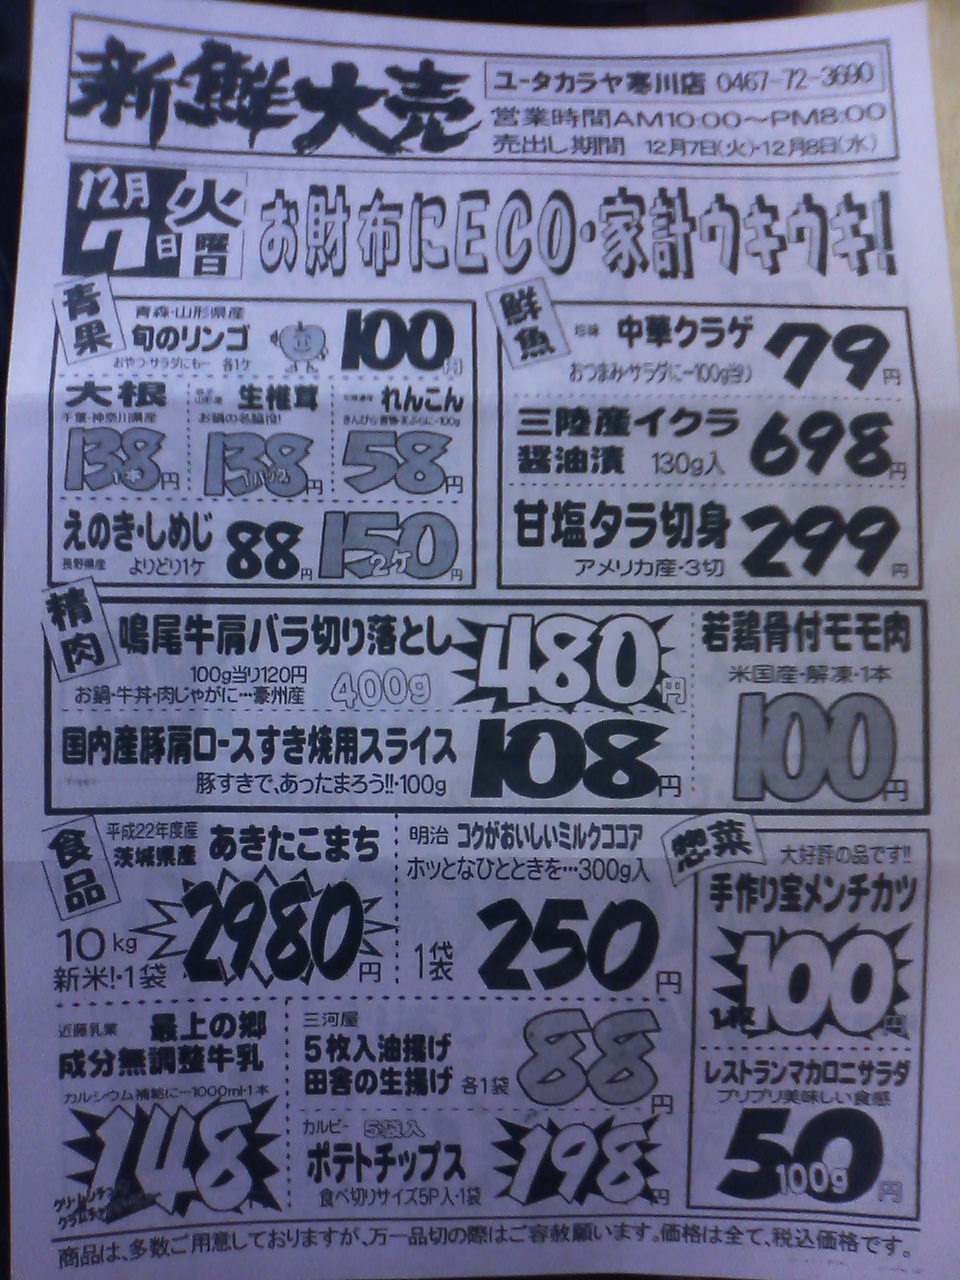 新鮮大売
ユータカラヤ寒川店 0467-72-3690
営業時間AM10:00～PM8:00
売出し期間 12月7日(火)・12月8日(水)
12月7日火曜
お財布にECO・家計ウキウキ!
青果
青森・山形県産
旬のリンゴ
おやつ・サラダにも… 各1ケ
100円
大根
千葉・神奈川県産
138円
1本
生椎茸
お鍋の名脇役!
138円
1パック
れんこん
58円
えのき・しめじ
長野県産 よりどり1ケ
88円
150円
2ケ
鮮魚
珍味 中華クラゲ
おつまみ・サラダに…100g当り
79円
三陸産イクラ
醤油漬 130g入
698円
甘塩タラ切身
アメリカ産・3切
299円
精肉
鳴尾牛肩バラ切り落とし
100g当り120円
お鍋・牛丼・肉じゃがに…豪州産
400g
480円
若鶏骨付モモ肉
米国産・解凍・1本
100円
国内産豚肩ロースすき焼用スライス
豚すきで、あったまろう!!・100g
108円
食品
平成22年度産
茨城県産 あきたこまち
10kg
新米!・1袋
2980円
明治 コクがおいしいミルクココア
ホッとなひとときを…300g入
1袋
250円
惣菜
大好評の品です!!
手作り宝メンチカツ
100円
1枚
レストランマカロニサラダ
プリプリ美味しい食感
50円
100g
近藤乳業 最上の郷
成分無調整牛乳
カルシウム補給に…1000ml・1本
148
三河屋
5枚入油揚げ
田舎の生揚げ 各1袋
88円
カルビー 5袋入
ポテトチップス
食べ切りサイズ5P入・1袋
198円
商品は、多数ご用意しておりますが、万一品切の際はご容赦願います。価格は全て、税込価格です。